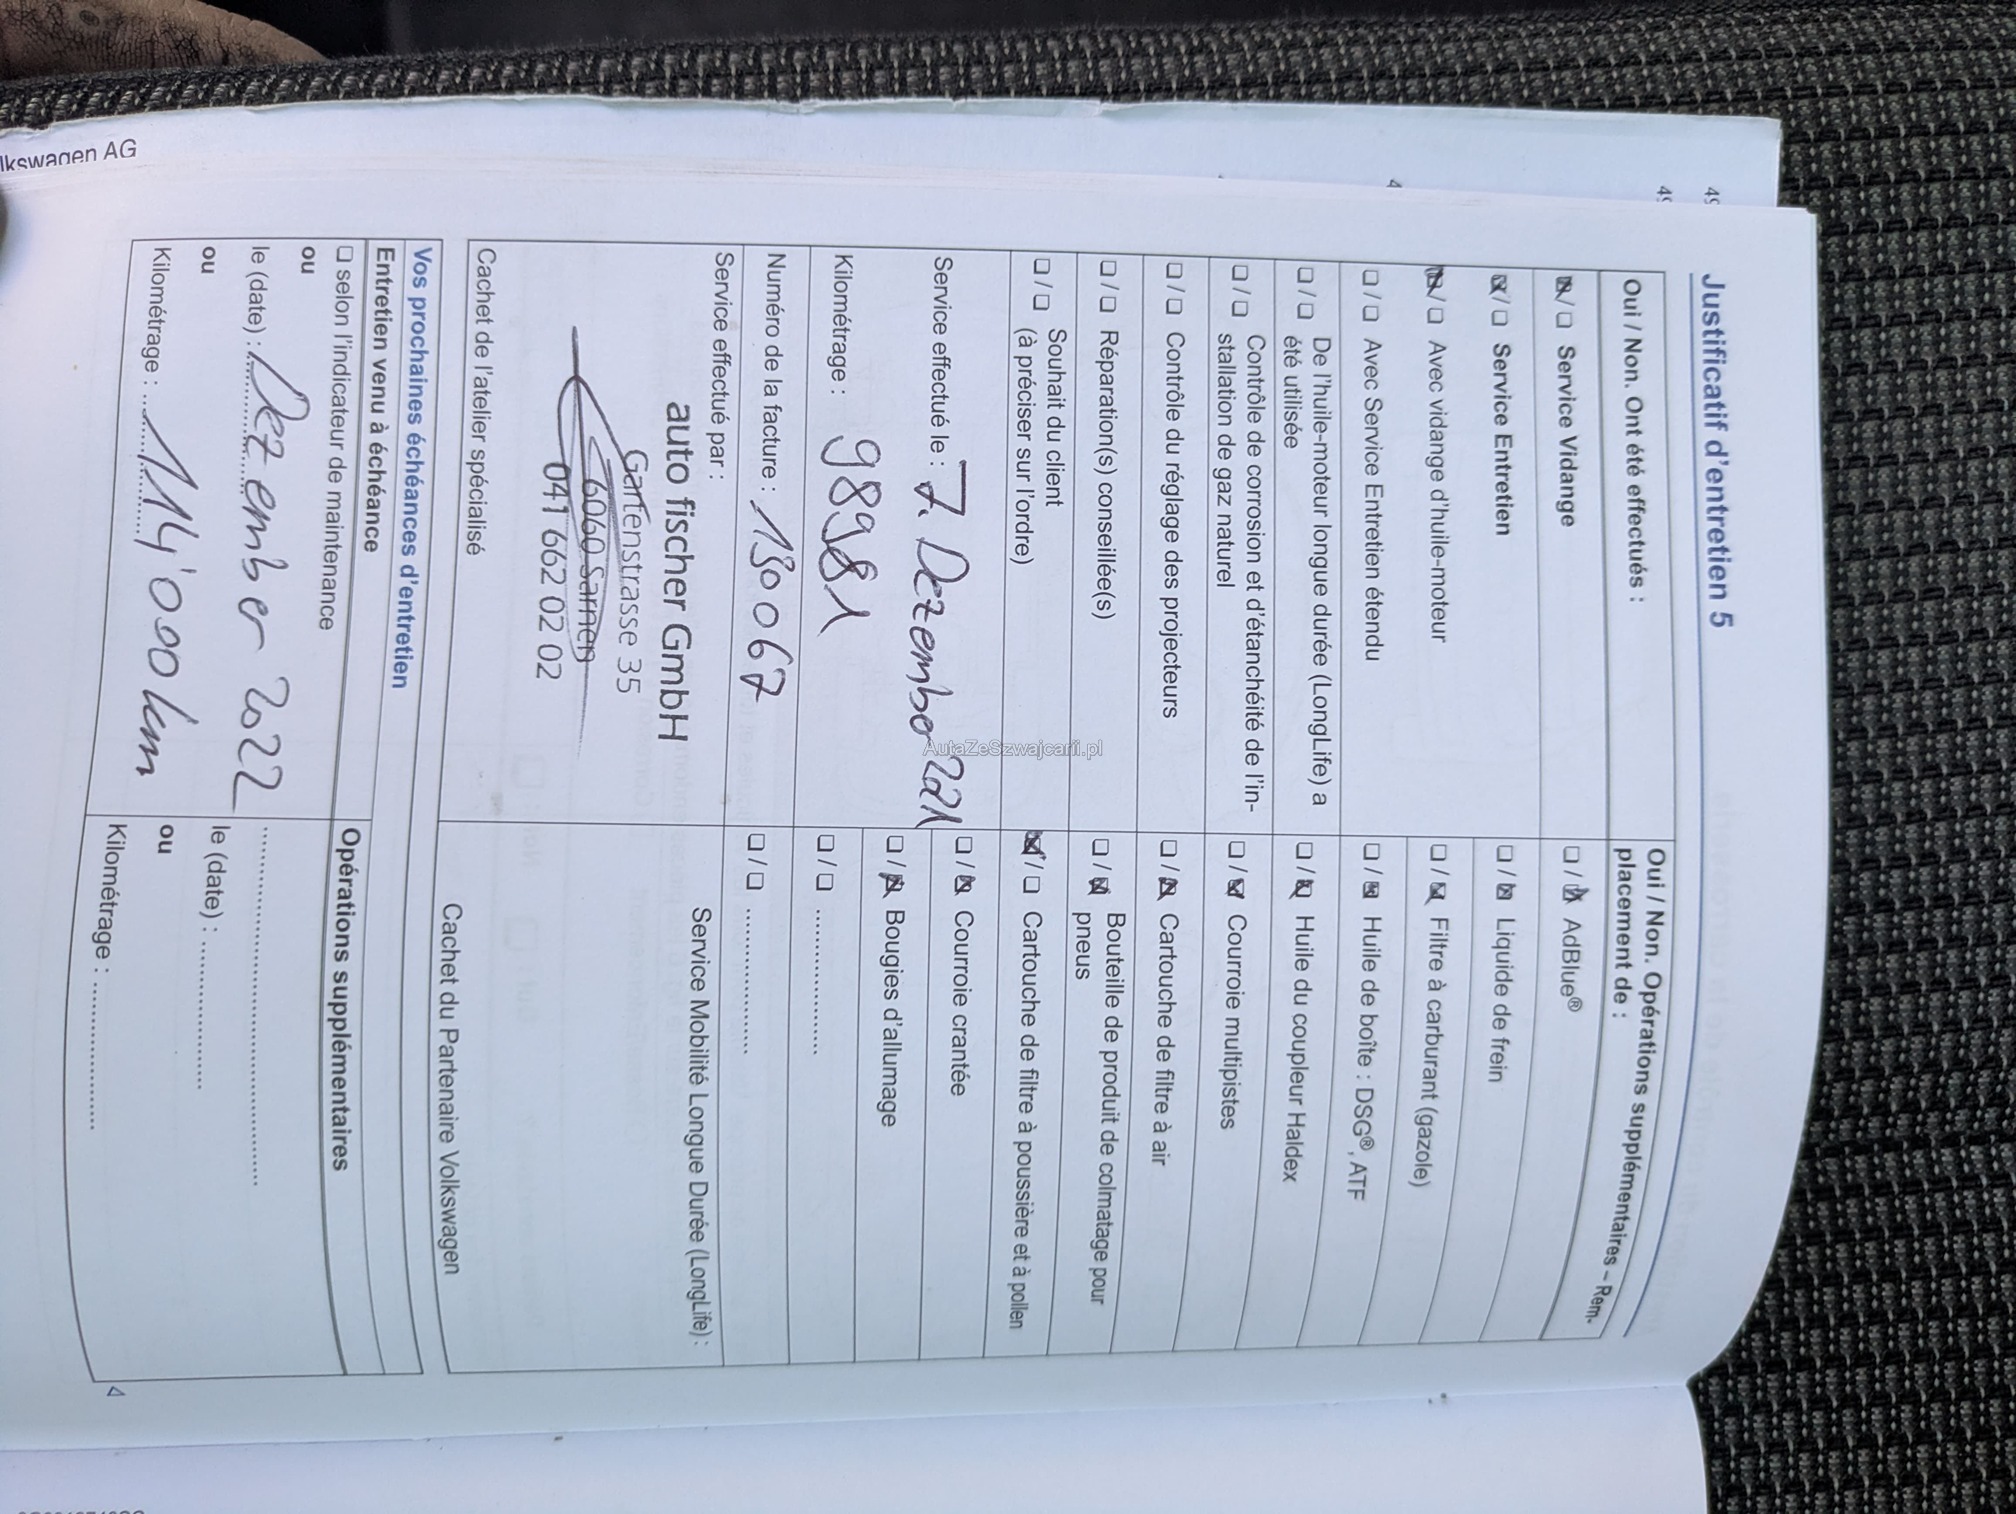 lkswagen AG
Justificatif d'entretien 5
Oui / Non. Ont été effectués :
☒ / ☐ Service Vidange
☒ / ☐ Service Entretien
☒ / ☐ Avec vidange d'huile-moteur
☐ / ☐ Avec Service Entretien étendu
☐ / ☐ De l'huile-moteur longue durée (LongLife) a
été utilisée
☐ / ☐ Contrôle de corrosion et d'étanchéité de l'in-
stallation de gaz naturel
☐ / ☐ Contrôle du réglage des projecteurs
☐ / ☐ Réparation(s) conseillée(s)
☐ / ☐ Souhait du client
(à préciser sur l'ordre)
Service effectué le : 7. Dezember 2021
Kilométrage : 98981
Numéro de la facture : 130067
Service effectué par :
auto fischer GmbH
Gartenstrasse 35
6060 Sarnen
041 662 02 02
Cachet de l'atelier spécialisé
Oui / Non. Opérations supplémentaires – Rem-
placement de :
☐ / ☒ AdBlue®
☐ / ☒ Liquide de frein
☐ / ☒ Filtre à carburant (gazole)
☐ / ☒ Huile de boîte : DSG®, ATF
☐ / ☒ Huile du coupleur Haldex
☐ / ☒ Courroie multipistes
☐ / ☒ Cartouche de filtre à air
☐ / ☒ Bouteille de produit de colmatage pour
pneus
☒ / ☐ Cartouche de filtre à poussière et à pollen
☐ / ☒ Courroie crantée
☐ / ☒ Bougies d'allumage
☐ / ☐ ................
☐ / ☐ ................
Service Mobilité Longue Durée (LongLife) :
Cachet du Partenaire Volkswagen
Vos prochaines échéances d'entretien
Entretien venu à échéance
☐ selon l'indicateur de maintenance
ou
le (date) : Dezember 2022
ou
Kilométrage : 114'000 km
Opérations supplémentaires
........................................
le (date) : ................
ou
Kilométrage : ................
AutaZeSzwajcarii.pl